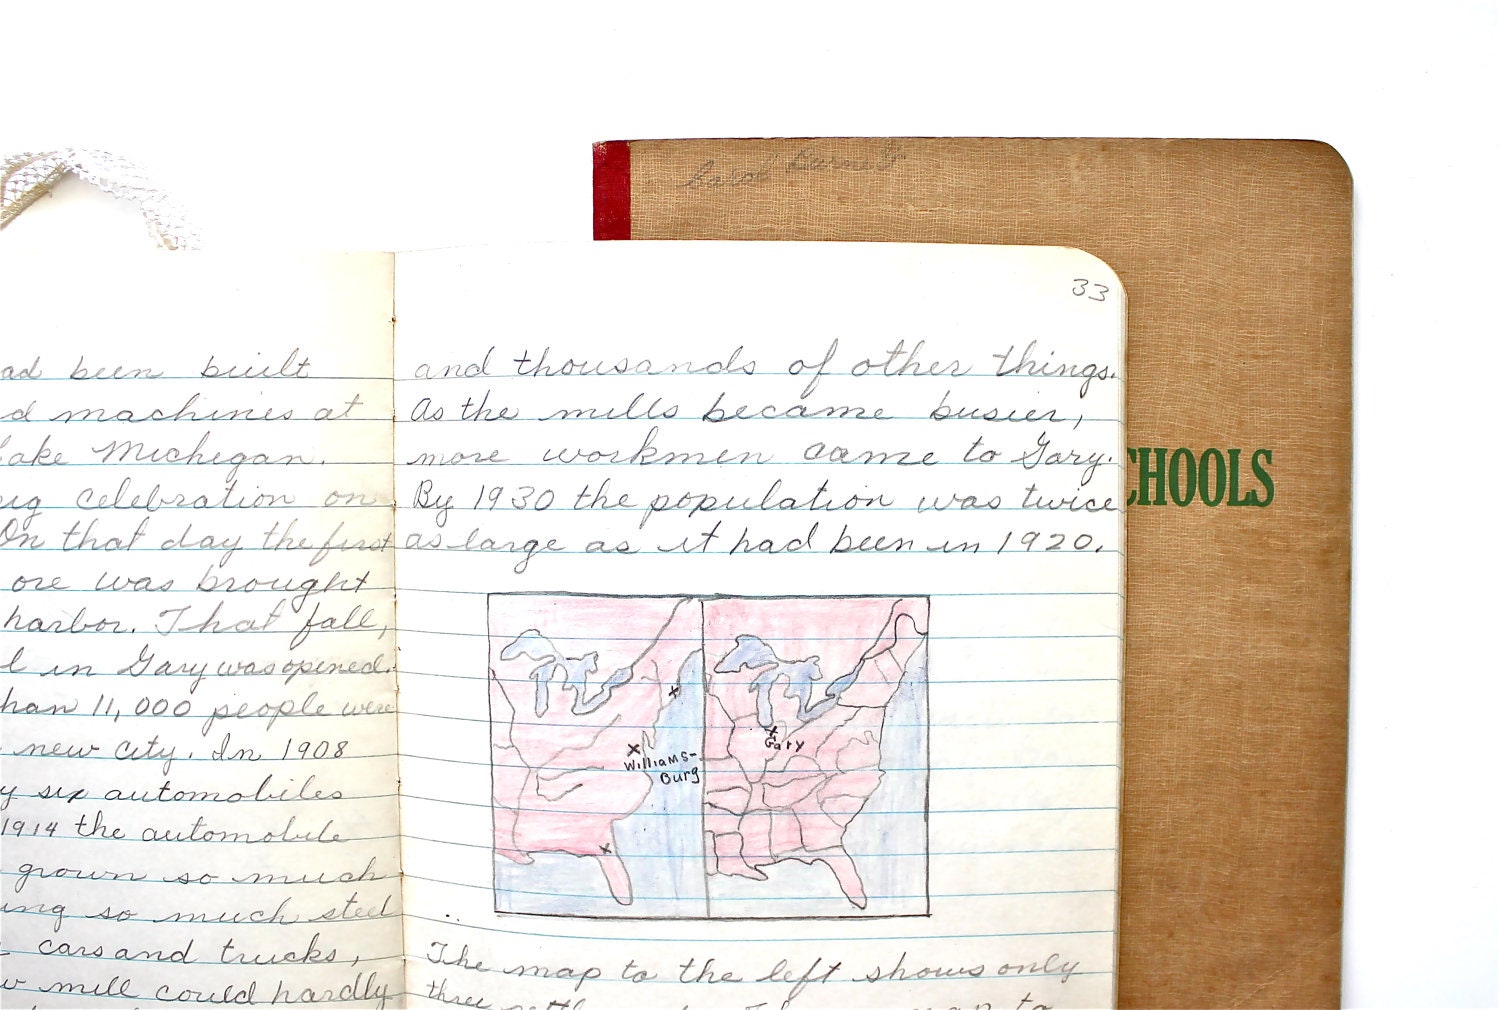 Carol Burnett
CHOOLS
ad been built
d machines at
Lake Michigan.
ig celebration on
On that day the first
ore was brought
harbor. That fall,
l in Gary was opened.
han 11,000 people were
new city. In 1908
y six automobiles
1914 the automobile
grown so much
ing so much steel
cars and trucks,
w mill could hardly
33
and thousands of other things.
As the mills became busier,
more workmen came to Gary.
By 1930 the population was twice
as large as it had been in 1920.
x
x
Williams-
Burg
x
x
Gary
The map to the left shows only
three